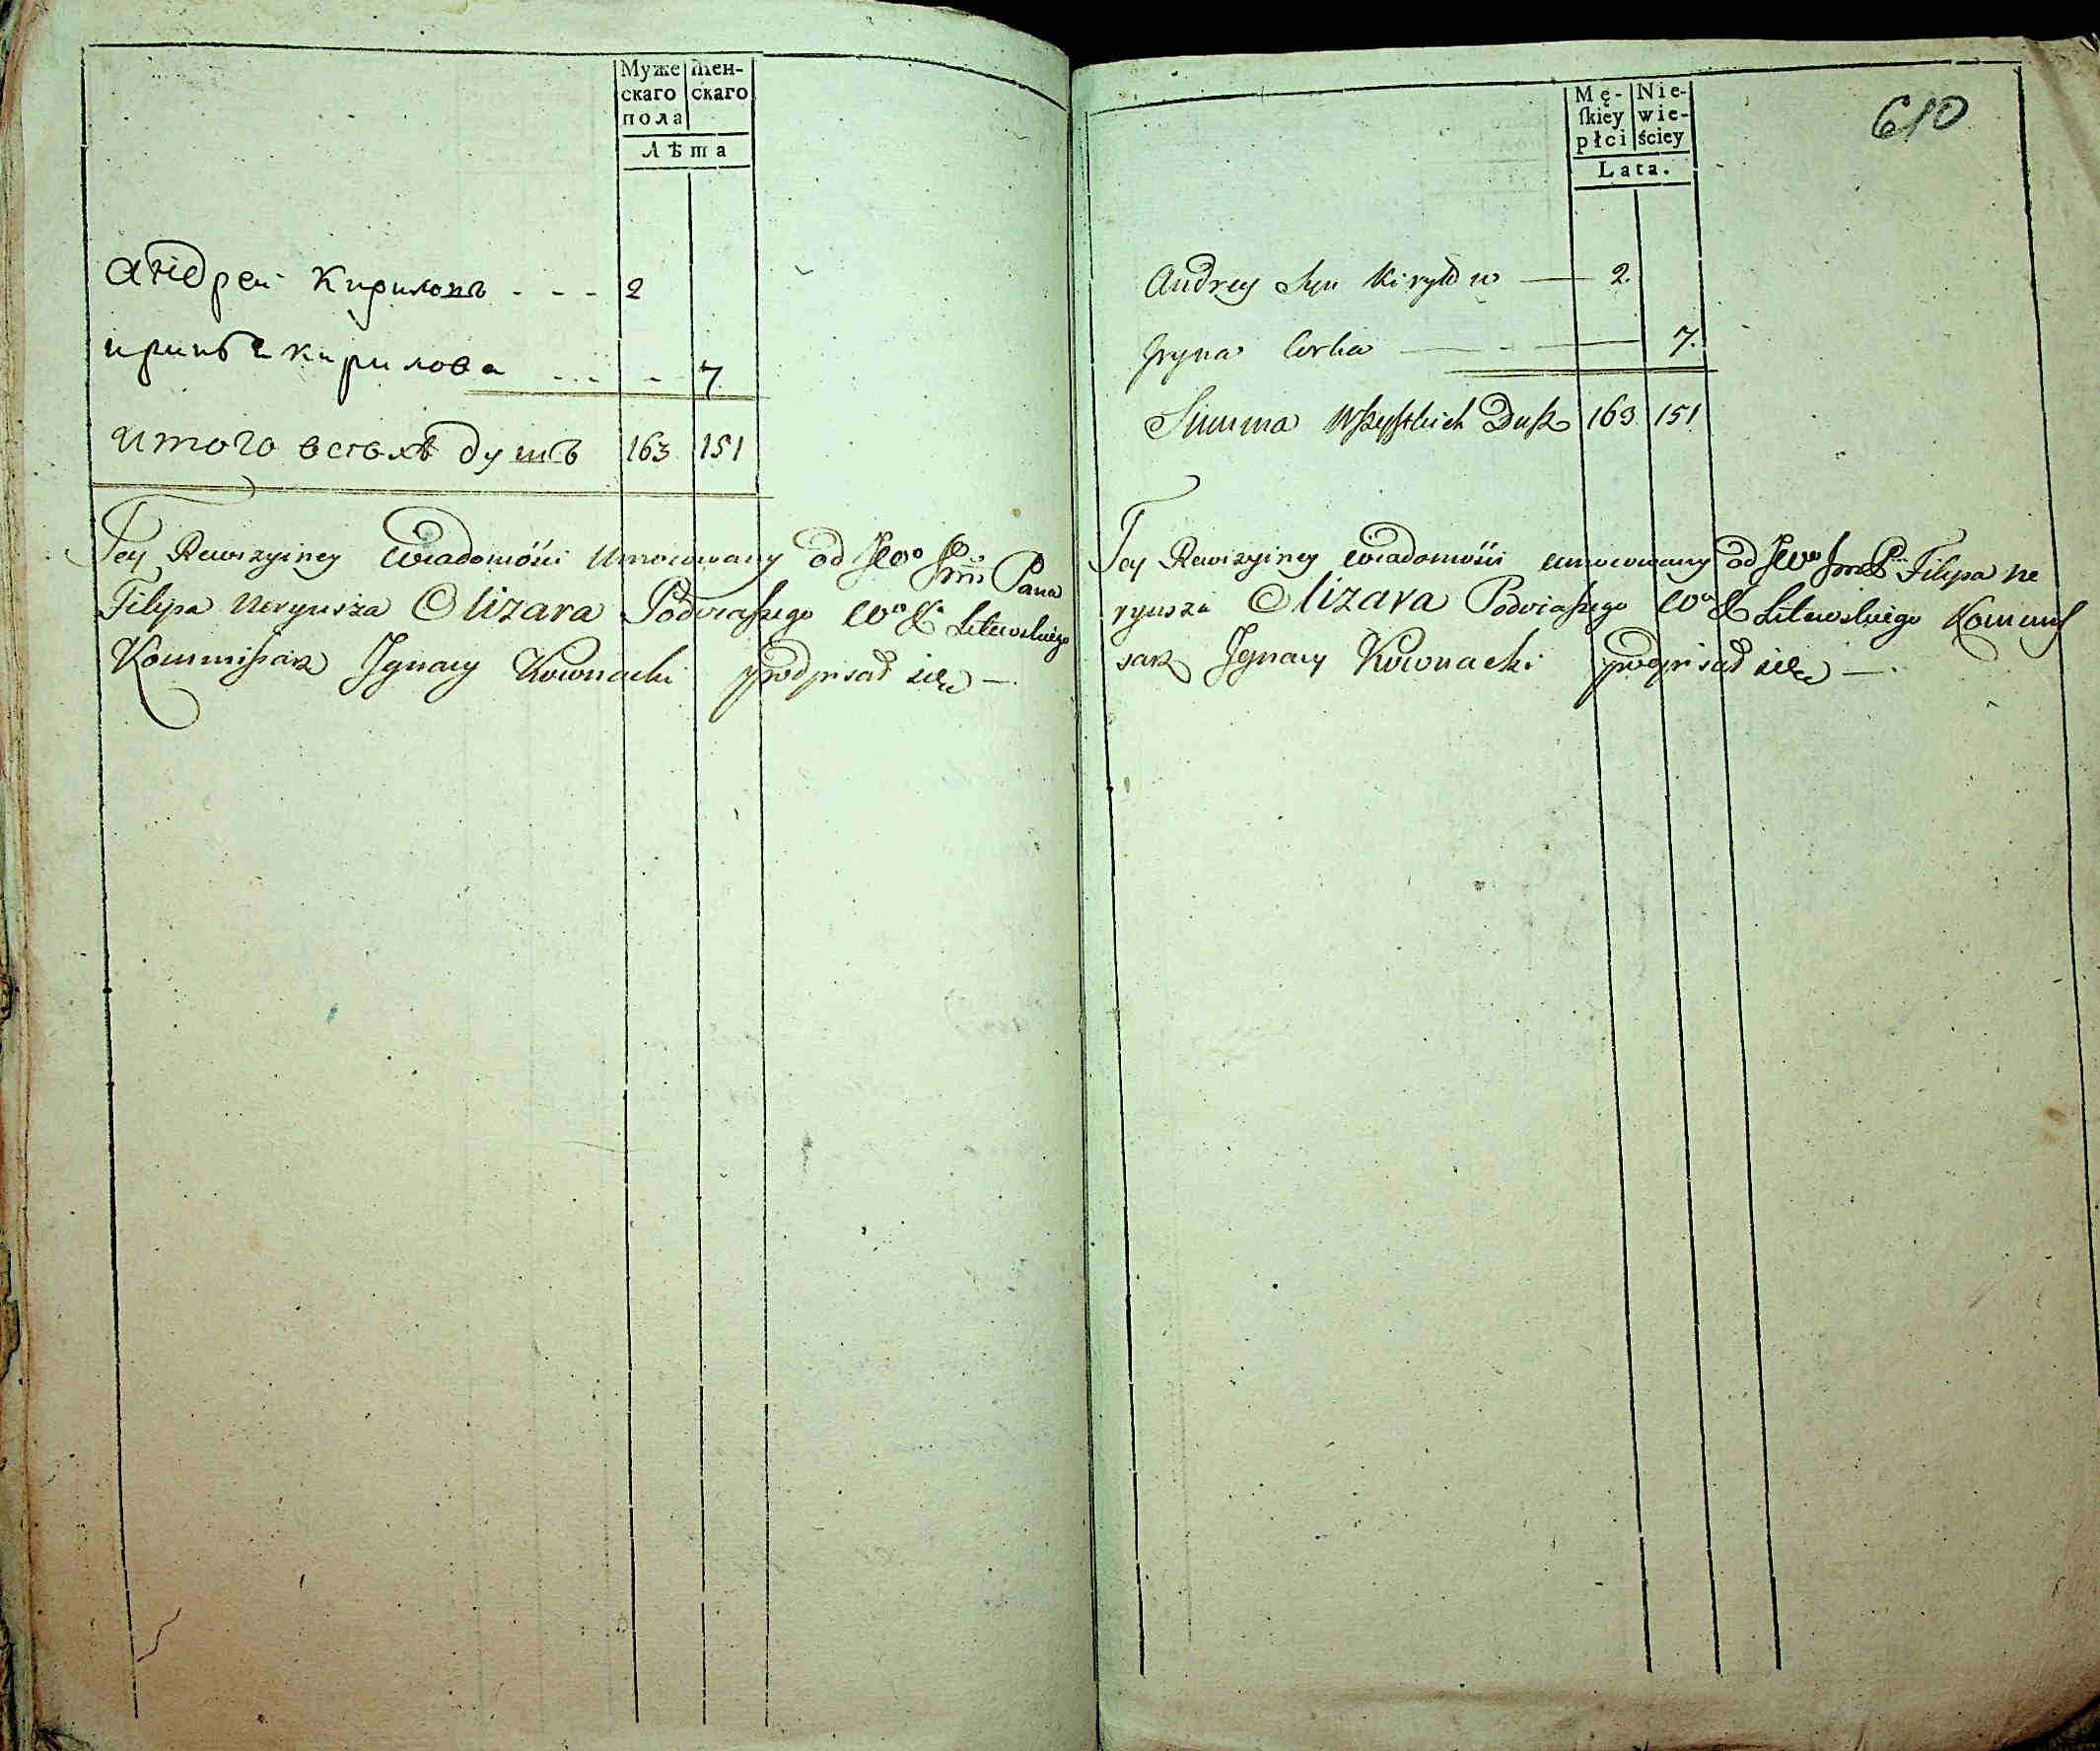 Муже
скаго
пола
Жен-
скаго
Лѣта
андреи Кириловъ - - - 2
ирина кирилова ... - 7
итого всѣхъ душъ 163 151
Tey Rewizyiney Wiadomości Umocowany od JWo Jmci Pana
Filipa Neryusza Olizara Podczaszego Wo X Litewskiego
Kommisarz Jgnacy Kownacki podpisał się —
610
Mę-
ſkiey
płci
Nie-
wie-
ściey
Lata.
Andrey Syn Kiryłów — 2.
Jryna Corka — 7.
Summa Wszystkich Dusz 163 151
Tey Rewizyiney Wiadomości umocowany od JWo Jmci P. Filipa Ne
ryusza Olizara Podczaszego Wo X Litewskiego Kommis
sarz Jgnacy Kownacki podpisał się —.